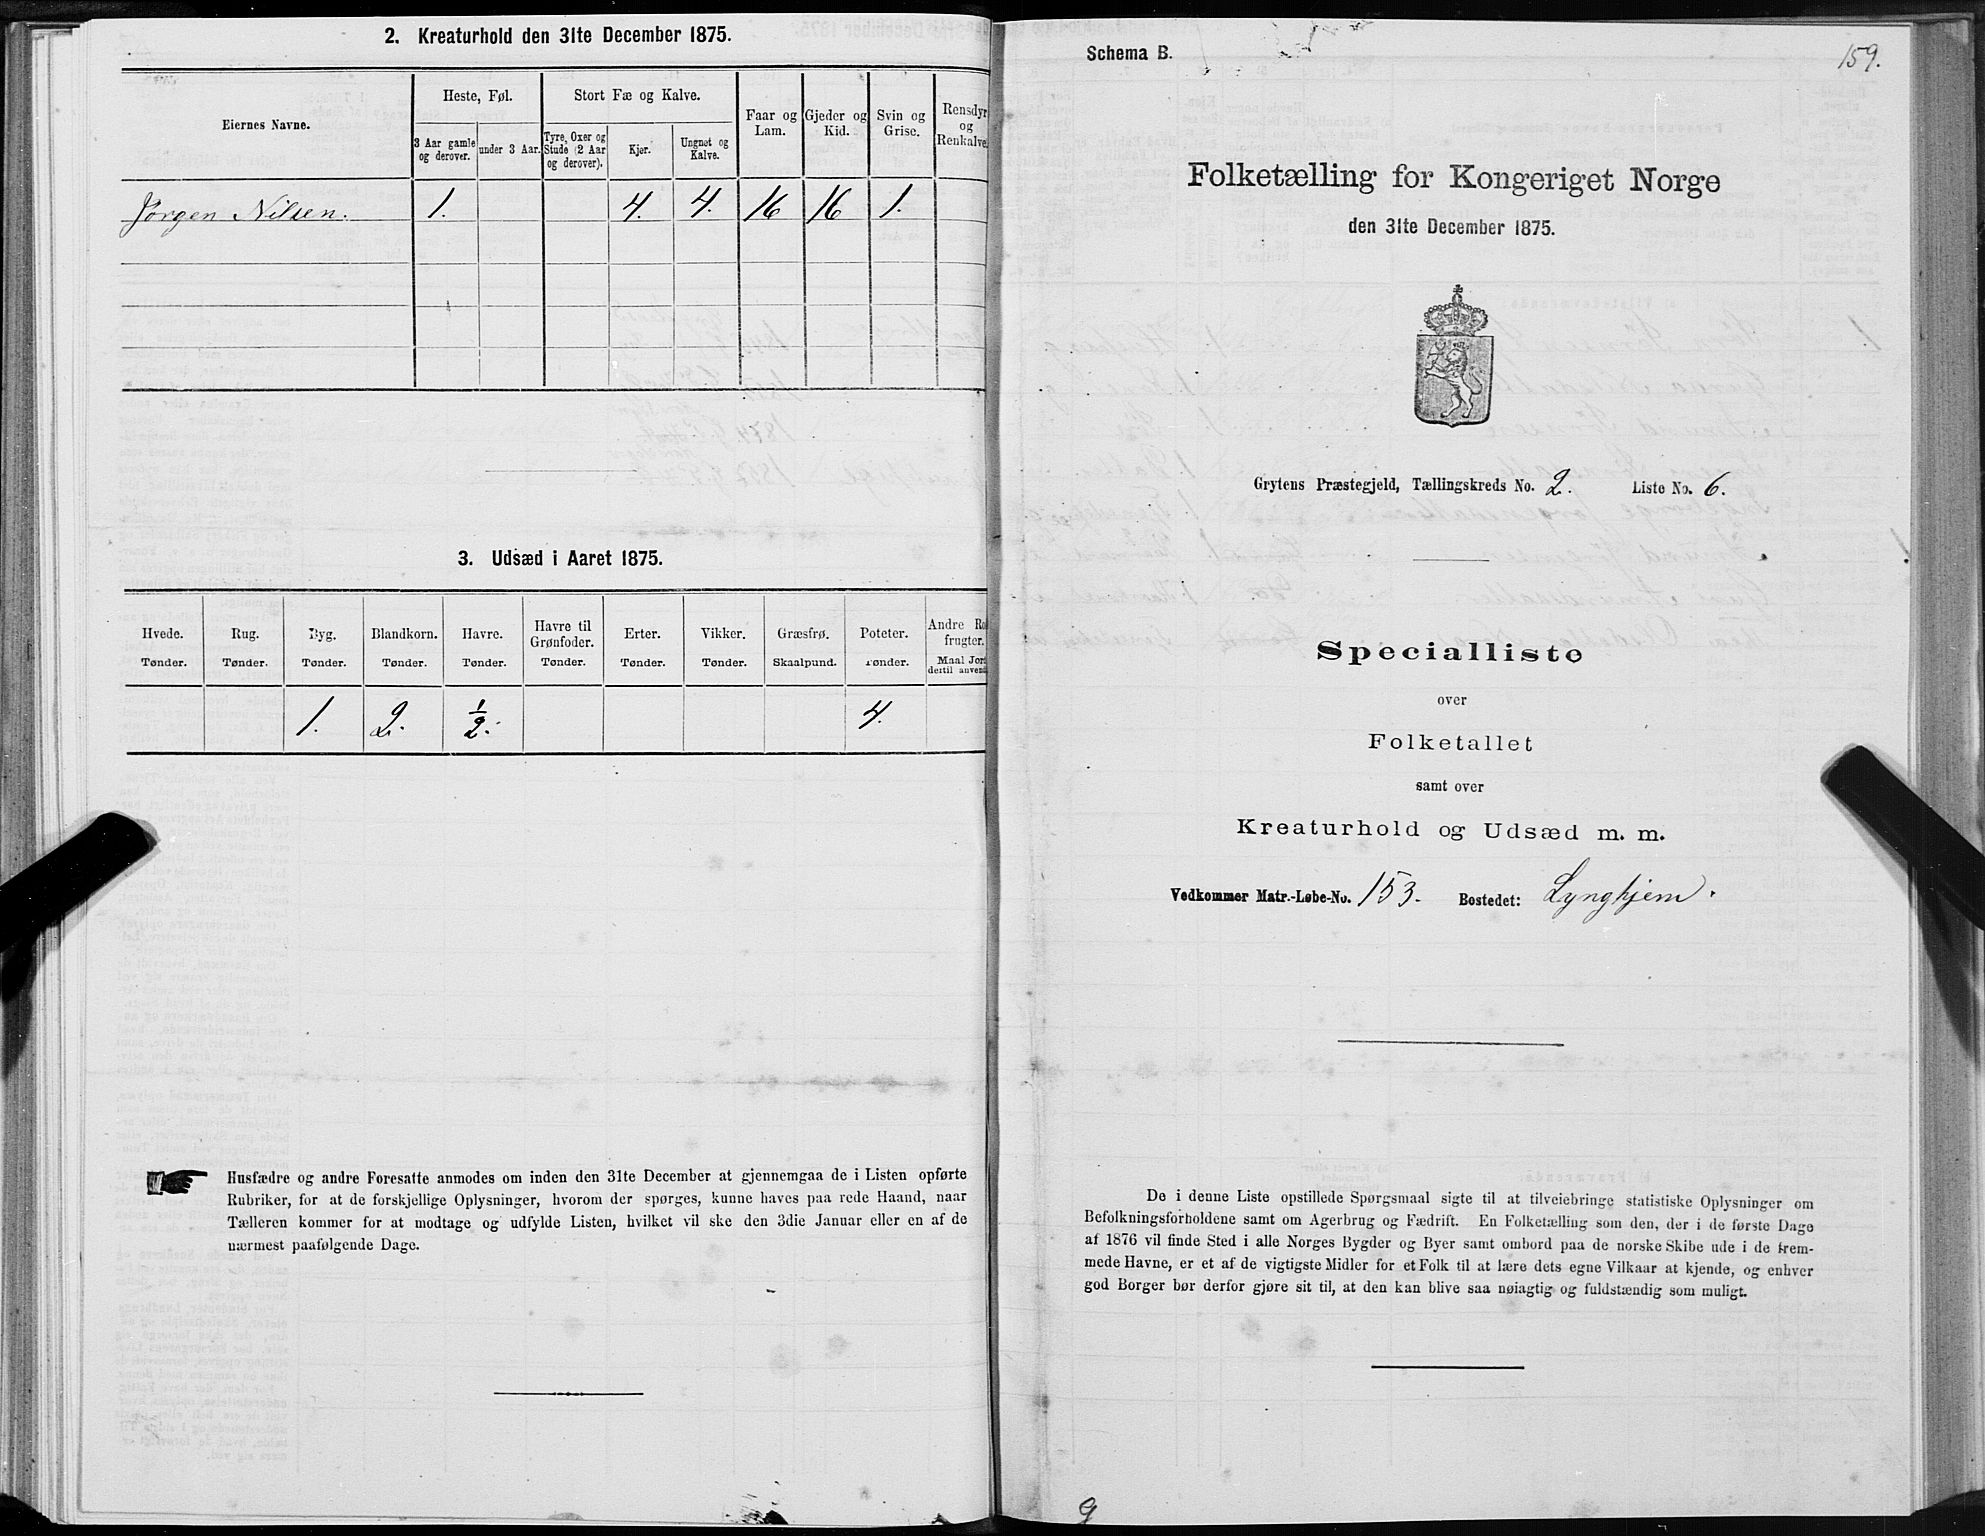 2. Kreaturhold den 31te December 1875.
Eiernes Navne.
Heste, Føl.
3 Aar gamle og derover.
under 3 Aar.
Stort Fæ og Kalve.
Tyre, Oxer og Stude (2 Aar og derover).
Kjør.
Ungnøt og Kalve.
Faar og Lam.
Gjeder og Kid.
Svin og Grise.
Rensdyr og Renkalve.
Jørgen Nilsen. 1. 4. 4. 16 16 1.
3. Udsæd i Aaret 1875.
Hvede. Rug. Byg. Blandkorn. Havre. Havre til Grønfoder. Erter. Vikker. Græsfrø. Poteter. Andre Ro frugter.
Tønder. Tønder. Tønder. Tønder. Tønder. Tønder. Tønder. Tønder. Skaalpund. Tønder. Maal Jord dertil anvend
1. 2. 1/2. 4.
Husfædre og andre Foresatte anmodes om inden den 31te December at gjennemgaa de i Listen opførte
Rubriker, for at de forskjellige Oplysninger, hvorom der spørges, kunne haves paa rede Haand, naar
Tælleren kommer for at modtage og udfylde Listen, hvilket vil ske den 3die Januar eller en af de
nærmest paafølgende Dage.
Schema B.
159.
Folketælling for Kongeriget Norge
den 31te December 1875.
Grytens Præstegjeld, Tællingskreds No. 2. Liste No. 6.
Specialliste
over
Folketallet
samt over
Kreaturhold og Udsæd m. m.
Vedkommer Matr.-Løbe-No. 153. Bostedet: Lynghjem.
De i denne Liste opstillede Spørgsmaal sigte til at tilveiebringe statistiske Oplysninger om
Befolkningsforholdene samt om Agerbrug og Fædrift. En Folketælling som den, der i de første Dage
af 1876 vil finde Sted i alle Norges Bygder og Byer samt ombord paa de norske Skibe ude i de frem-
mede Havne, er et af de vigtigste Midler for et Folk til at lære dets egne Vilkaar at kjende, og enhver
god Borger bør derfor gjøre sit til, at den kan blive saa nøiagtig og fuldstændig som muligt.
9